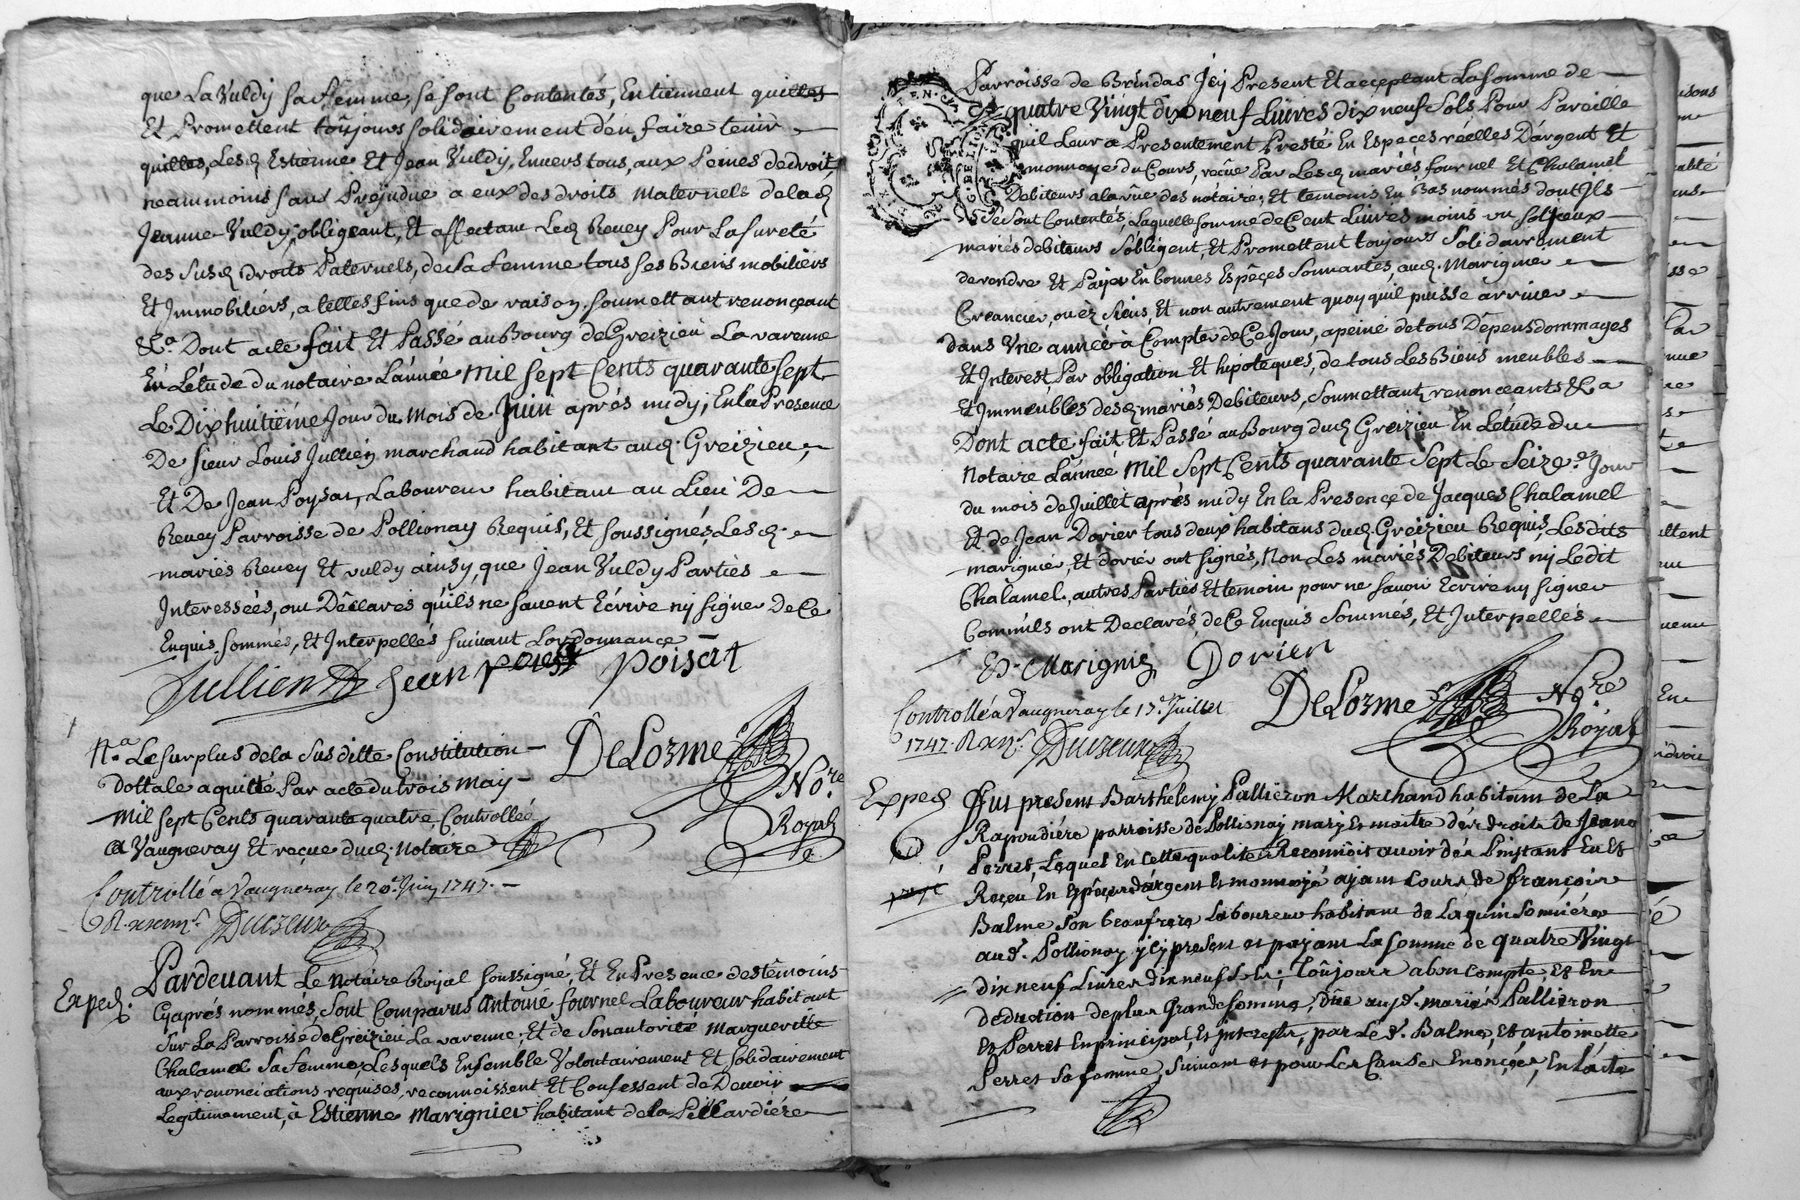 que La Vuldy sa femme, se sont Contentés, En tiennent quilles
Et Promettent toûjours solidairement d'en faire tenir
quilles, Lesd. Estienne Et Jean Vuldy, Envers tous, aux Peines de droit,
neammoins sans Préjudice a eux des droits Maternels de lad.
Jeanne Vuldy, obligeant, Et affectant Led. Revey Pour La sureté
des susd. droits Paternels, de sa femme tous ses Biens mobiliers
Et Immobiliérs, a telles fins que de raison, soumettant renonçeant
&c.a Dont acte fait Et Passé au Bourg de Greizieu La varenne
En L'étude du notaire L'année Mil sept Cents quarante sept
Le Dixhuitiéme Jour du mois de Juin aprés midy, En la Presence
De sieur Louis Jullien marchand habitant aud. Greizieu,
Et De Jean Poysat, Laboureur habitant au Lieu De
Revey Parroisse de Pollionay Requis, Et soussignés, Lesd.
mariés Revey Et Vuldy ainsy, que Jean Vuldy Parties
Interessées, ont Déclarés qu'ils ne savent Ecrire ny signer De Ce
Enquis sommés, Et Interpellés suivant L'ordonnance
Jullien Jean poisat
N.a Le surplus de la susditte Constitution
Dottale a quitté Par acte du trois May
Mil sept Cents quarante quatre, Controllé
a Vaugneray Et reçue dud. Notaire
DeLorme
No.re
Royal
Controllé a Vaugneray le 20.e Juin 1747.
Ducreux
Exped. Pardevant Le notaire Royal soussigné, Et En Presence des témoins
Cyaprés nommés, sont Comparus Antoine fournel Laboureur habitant
sur La Parroisse de Greizieu La varenne, Et de son autorité Margueritte
Chalamel sa femme, Lesquels Ensemble Volontairement Et solidairement
aux renonciations requises, reconnoissent Et Confessent de Devoir
Legitimement, à Estienne Marignier habitant de la Pillardiére
Parroisse de Brindas Jcy Present Et acceptant La somme de
quatre Vingt dix neuf Livres dix neuf sols Pour Pareille
quil Leur a Presentement Presté En Especes réelles D'argent Et
monnoye du Cours, reçue Par Lesd. mariés fournel Et Chalamel
Debiteurs a la vûe des notaire, Et temoins En Bas nommés dont Ils
se sont Contentés, Laquelle somme de Cent Livres moins un sol, Jceux
mariés debiteurs s'obligent, Et Promettent toujours solidairement
de rendre Et Payer En bonnes Espêçes sonnantes, aud. Marignier
Creancier, ou ez siens, Et non autrement quoy quil puisse arriver
dans Une année à Compter de Ce Jour, a peine de tous Dépens dommages
Et Interest, Par obligation Et hipoteques, de tous Les Biens meubles
Et Immeubles desd. mariés Debiteurs, soumettants, renonceants &c.a
Dont acte fait Et Passé au Bourg dud. Greizieu En L'étude du
Notaire L'année Mil sept Cents quarante sept Le seize.e Jour
du mois de Juillet aprés midy En la Presençe de Jacques Chalamel
Et de Jean Dorier tous deux habitans dud. Greizieu Requis, Lesdits
marignier, Et dorier ont signés, Non Les mariés Debiteurs ny Ledit
Chalamel, autres Parties Et temoin pour ne savoir Ecrire ny signer
Comm'ils ont Declarés, de Ce Enquis Sommés, Et Interpellés
E. Marignier Dorier
DeLorme No.re
Royal
Controllé a Vaugneray le 17.e Juillet
1747.
Ducreux
Exped. Fut present Barthelemy Pallieron Marchand habitant de La
Rapoudiére parroisse de Pollionay mary Et maitre des droits de Jeanne
Perret, Lequel En cette qualité Reconnoit avoir
Reçeu En Espêces d'argent Et monnoye ayant cours, de françois
Balme son beaufrere Laboureur habitant de
aud. Pollionay jcy present Et payant La somme de quatre Vingt
dix neuf Livres dix neuf sols; Toûjours abon compte, Et En
deduction de plus Grande somme, düe auxd. mariés Pallieron
Et Perret En principal, Et interests, par Led. Balme, Et antoinette
Perret sa femme, suivant et pour Les Causes Enonçées, En l'acte